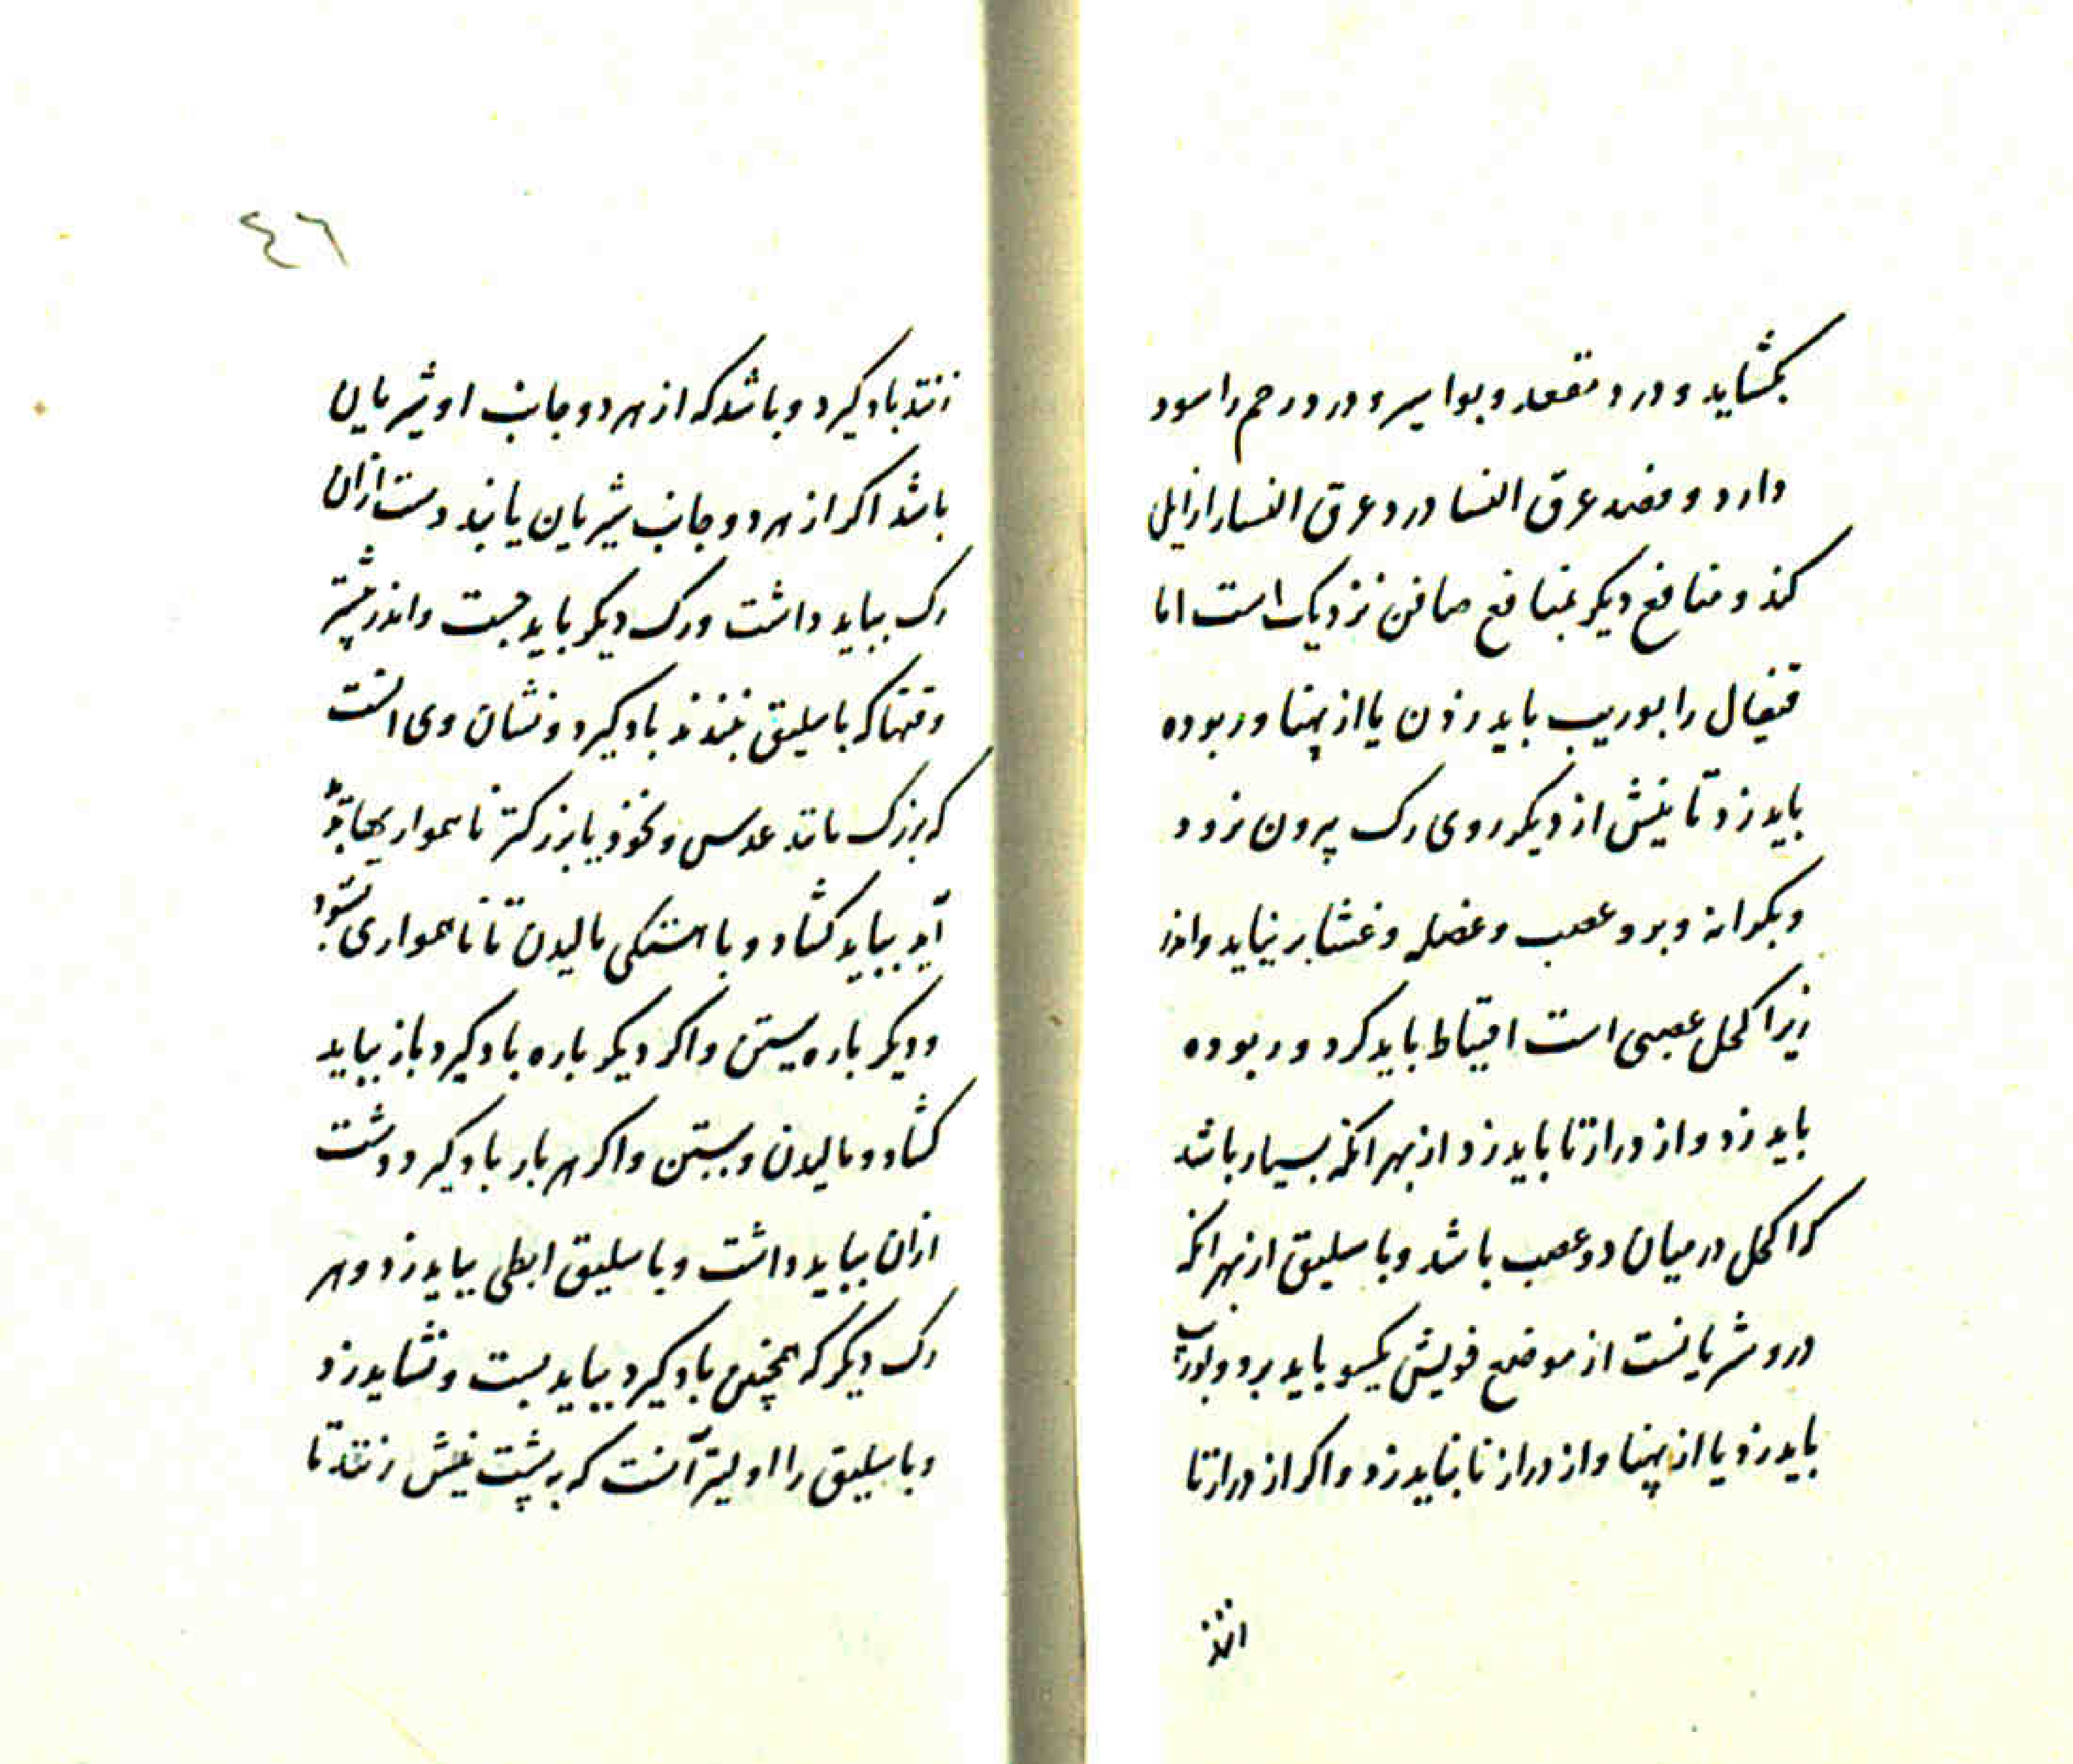 بکشاید و درد مقعد و بواسیر و درد رحم را سود
دارد و فصد عرق النسا درد عرق النسا را زایل
کند و منافع دیکر بمنافع صافن نزدیک است اما
قیفال را بوریب باید زدن یا از پهنا و ربوده
باید زد تا نیش از دیکر روی رک بیرون نرود
و بکرانه و برو عصب و عضله و غشا بر نیاید و اندر
زیر اکحل عصبی است احتیاط باید کرد و ربوده
باید زد و از درازنا باید زد از بهر انکه بسیار باشد
که اکحل در میان دو عصب باشد و باسلیق از بهر انکه
درو شریانست از موضع خویش یکسو باید برد و بوریب
باید زد یا از پهنا و از درازنا نباید زد و اکر از درازنا
٤٦
زنند باد کیرد و باشد که از هر دو جانب او شریان
باشد اکر از هر دو جانب شریان یابند دست ازان
رک بباید داشت و رک دیکر باید جست و اندر بیشتر
وقتها که باسلیق ببندند باد کیرد و نشان وی انست
که بزرک مانند عدسی و نخود یا بزرکتر ناهمواریها
آید بباید کشاد و باهستکی مالیدن تا ناهمواری بشود
و دیکر باره بستن و اکر دیکر باره باد کیرد باز بباید
کشاد و مالیدن و بستن و اکر هر بار باد کیرد دست
ازان بباید داشت و باسلیق ابطی بباید زد و هر
رک دیکر که همچنین باد کیرد بباید بست و نشاید زد
و باسلیق را اولیتر آنست که به پشت نیش زنند تا